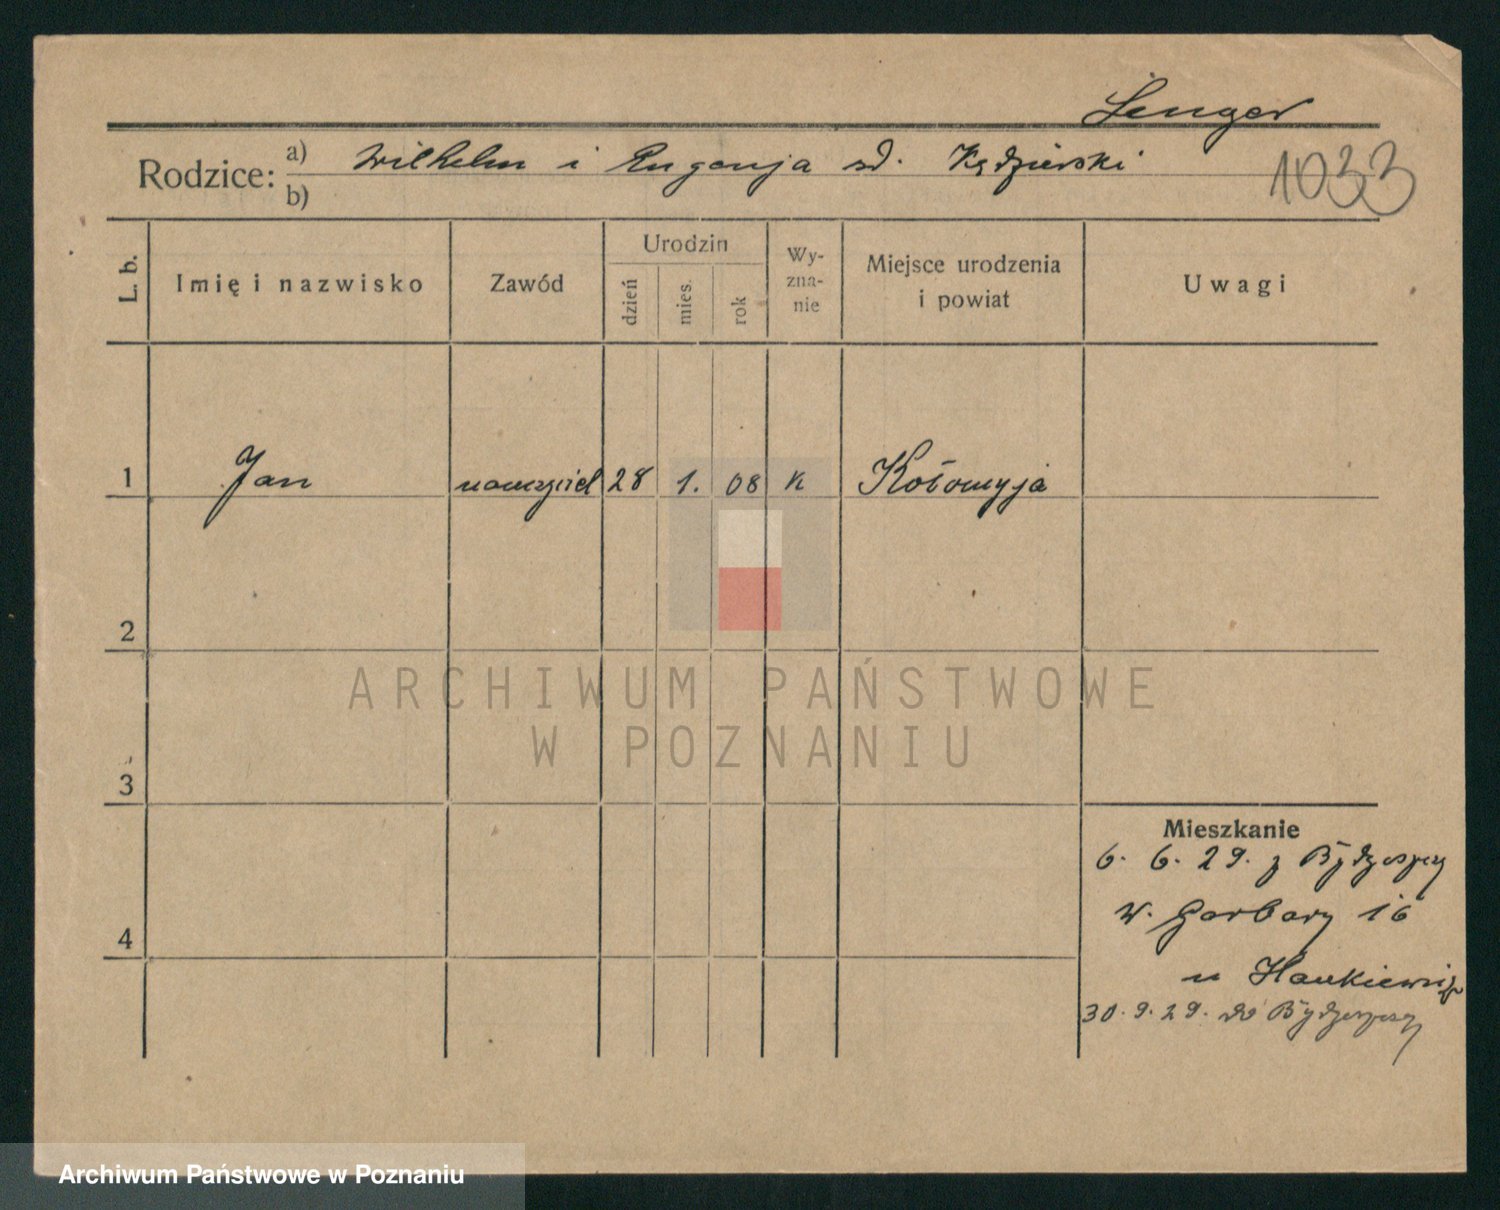 Senger
Rodzice: a) Wilhelm i Eugenja zd. Kędzierski
b)
1033
L. b.
Imię i nazwisko
Zawód
Urodzin
dzień
mies.
rok
Wy-
zna-
nie
Miejsce urodzenia
i powiat
Uwagi
1 Jan nauczyciel 28 1. 08 k Kołomyja
2
ARCHIWUM PAŃSTWOWE
W POZNANIU
3
4
Mieszkanie
6. 6. 29. z Bydgoszczy
W. Garbary 16
u Hankiewicz
30. 9. 29. do Bydgoszczy
Archiwum Państwowe w Poznaniu